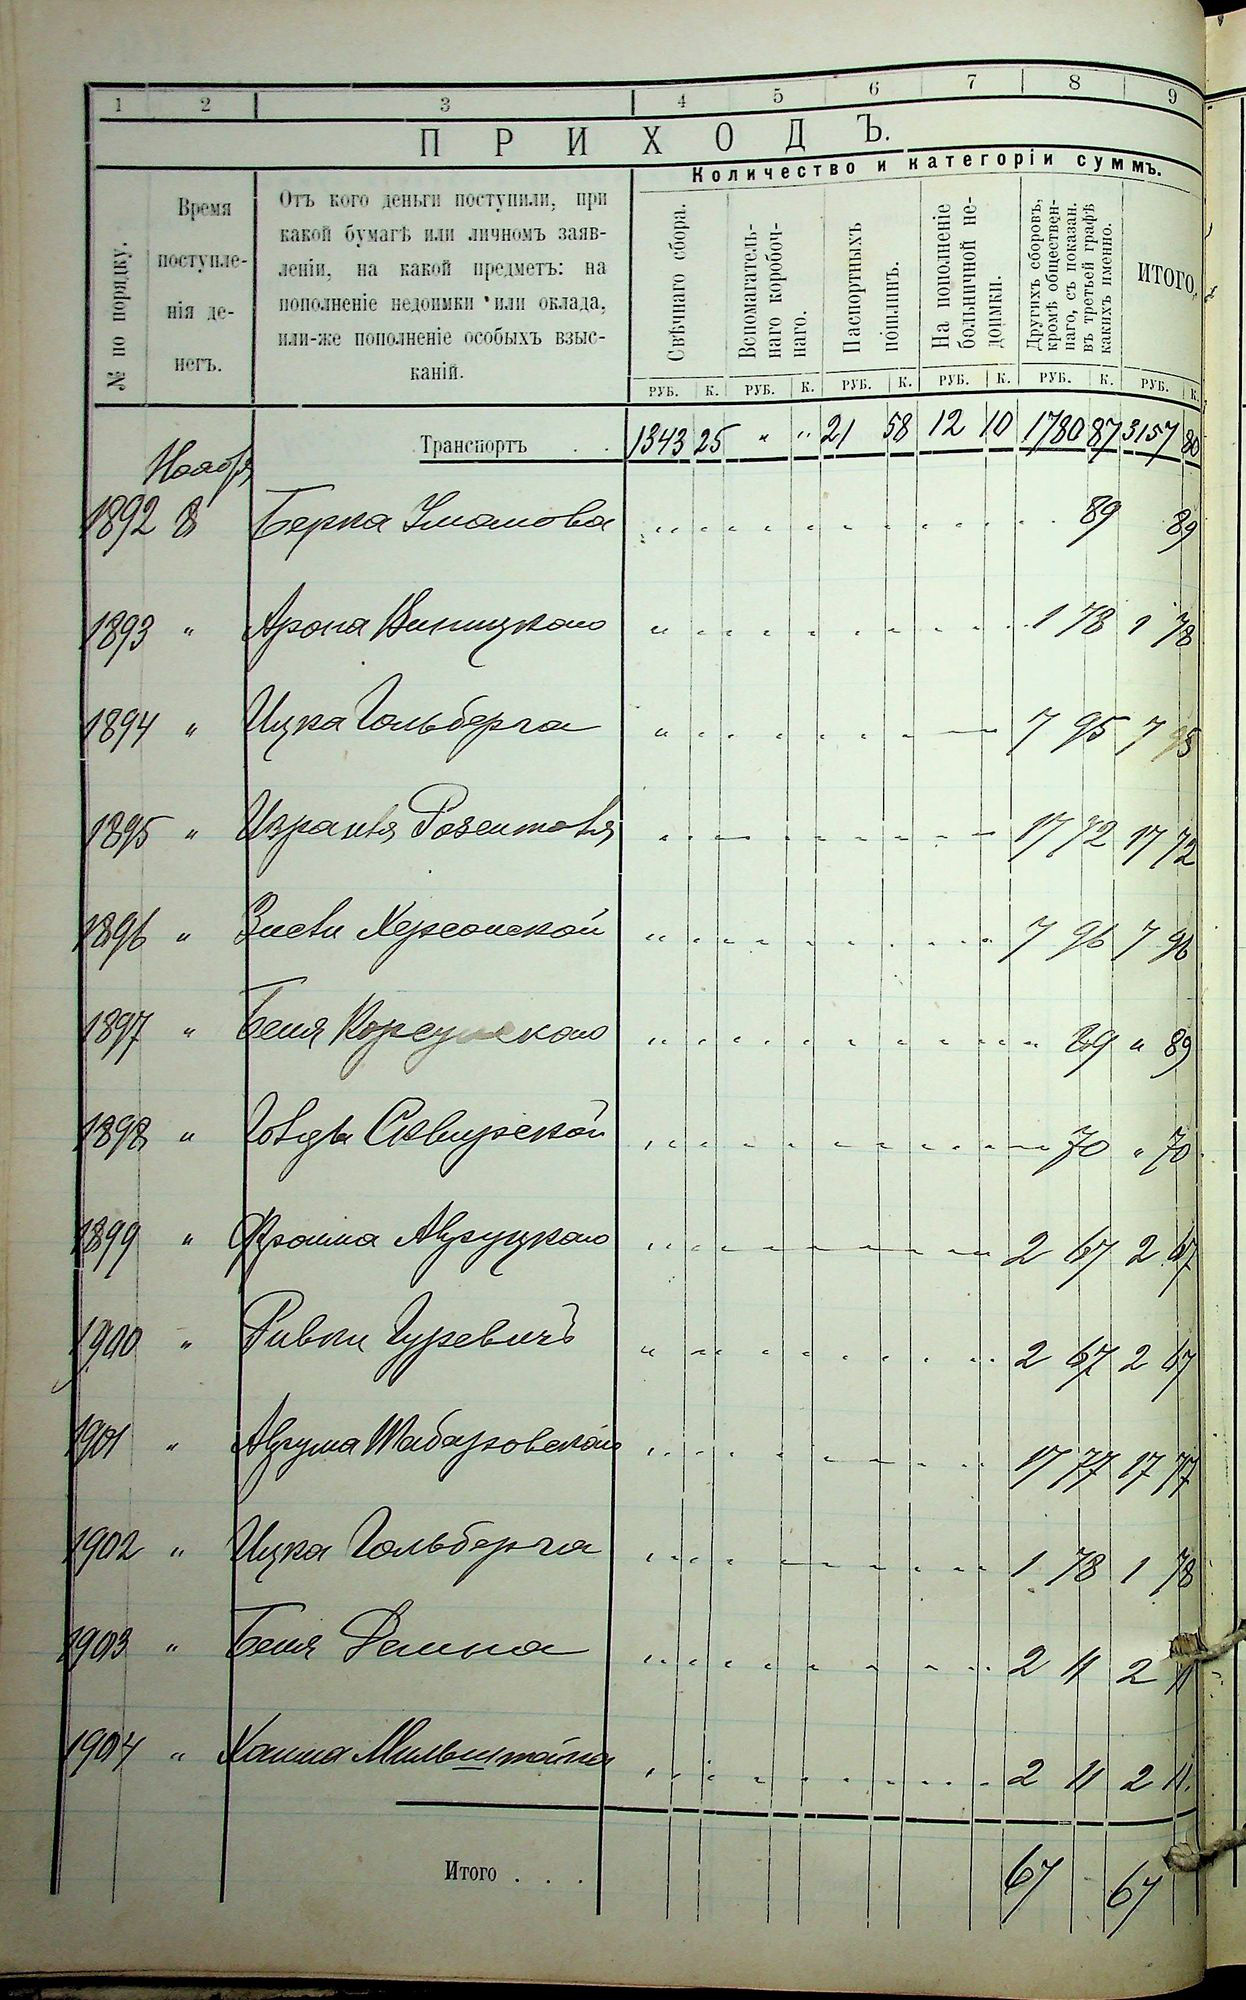 1 2 3 4 5 6 7 8 9
ПРИХОДЪ.
Количество и категоріи суммъ.
№ по порядку.
Время
поступле-
нія де-
негъ.
Отъ кого деньги поступили, при
какой бумагѣ или личномъ заяв-
леніи, на какой предметъ: на
пополненіе недоимки или оклада,
или-же пополненіе особыхъ взыс-
каній.
Свѣчнаго сбора.
Вспомагатель-
наго коробоч-
наго.
Паспортныхъ
пошлинъ.
На пополненіе
больничной не-
доимки.
Другихъ сборовъ,
кромѣ обществен-
наго, съ показан.
въ третьей графѣ
какихъ именно.
ИТОГО.
РУБ. К. РУБ. К. РУБ. К. РУБ. К. РУБ. К. РУБ. К.
Транспортъ . . 1343 25 " " 21 58 12 10 1780 87 3157 80
Ноабря
1892 8 Берка Уманова " " " 89 89
1893 " Арона Виницкаго " " " 1 78 1 78
1894 " Ицка Гольберга " " " 7 95 7 95
1895 " Израиля " " " 17 72 17 72
1896 " Херсонской " " " 7 96 7 96
1897 " Беня Корсунскаго " " " 89 " 89
1898 " Сквирской " " " 70 " 70
1899 " Фроима " " " 2 67 2 67
1900 " Ривки Гуревичъ " " " 2 67 2 67
1901 " " " " 17 77 17 77
1902 " Ицка Гольберга " " " 1 78 1 78
1903 " Беня " " " 2 11 2 11
1904 " Хаима Мильштейна " " " 2 11 2 11.
Итого . . . 67 67